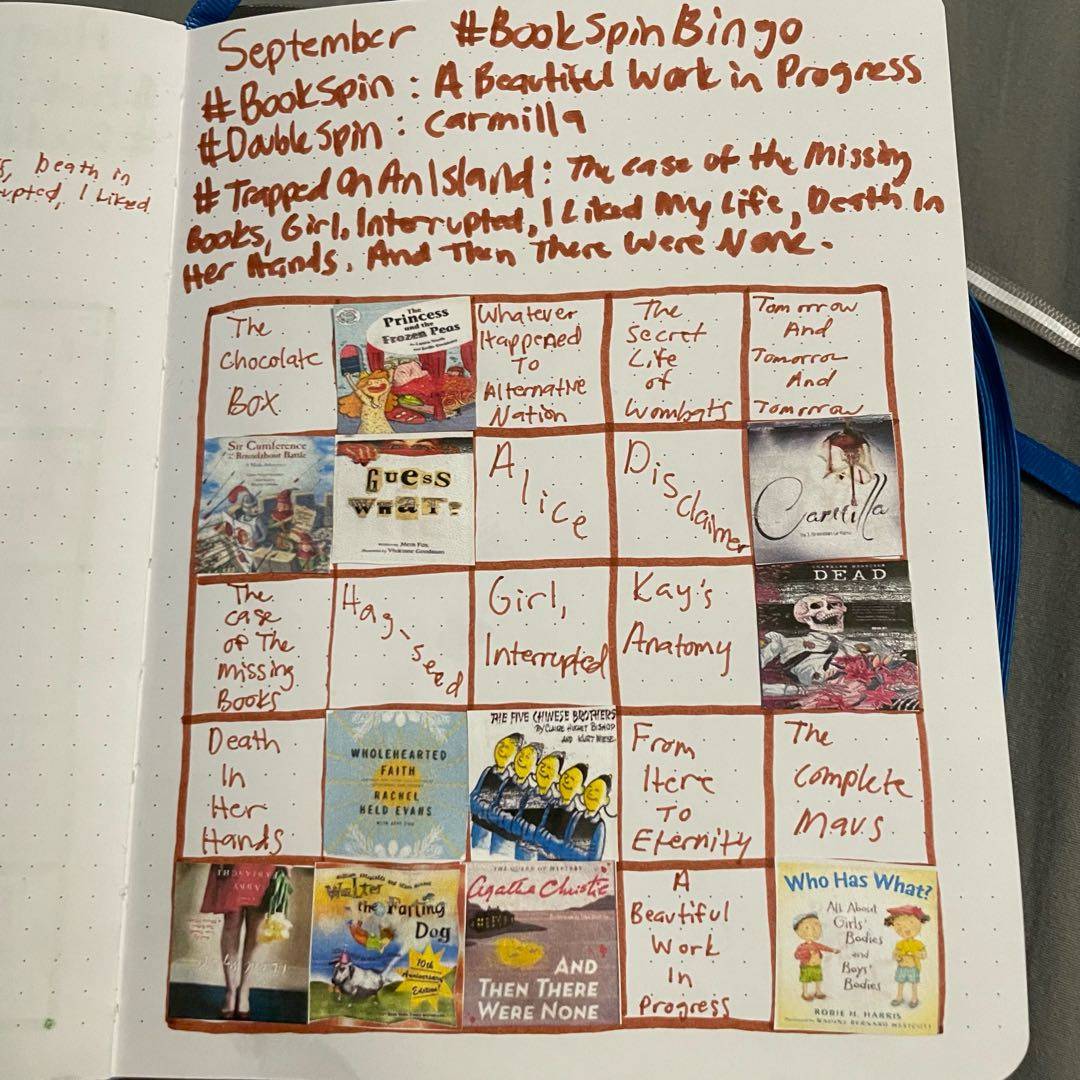 September #BookSpinBingo
#BookSpin: A Beautiful Work in Progress
#DoubleSpin: Carmilla
#TrappedOnAnIsland: The case of the Missing
Books, Girl, Interrupted, I Liked My Life, Death In
Her Hands, And Then There Were None.
Death in
I Liked
The
Chocolate
Box
The
Princess
and the
Frozen Peas
Whatever
Happened
To
Alternative
Nation
The
Secret
Life
of
Wombats
Tomorrow
And
Tomorrow
And
Tomorrow
Sir Cumference
Roundabout Battle
Guess
What?
Mem Fox
Vivienne Goodman
Alice
Disclaimer
Carmilla
The
case
of The
Missing
Books
Hag-seed
Girl,
Interrupted
Kay's
Anatomy
DEAD
Death
In
Her
Hands
WHOLEHEARTED
FAITH
RACHEL
HELD EVANS
THE FIVE CHINESE BROTHERS
BY CLAIRE HUCHET BISHOP
AND KURT WIESE
From
Here
To
Eternity
The
Complete
Maus
ABBY
Walter
the Farting
Dog
10th
Anniversary
Edition!
THE QUEEN OF MYSTERY
Agatha Christie
AND
THEN THERE
WERE NONE
A
Beautiful
Work
In
Progress
Who Has What?
All About
Girls'
Bodies
and
Boys'
Bodies
ROBIE H. HARRIS
NADINE BERNARD WESTCOTT